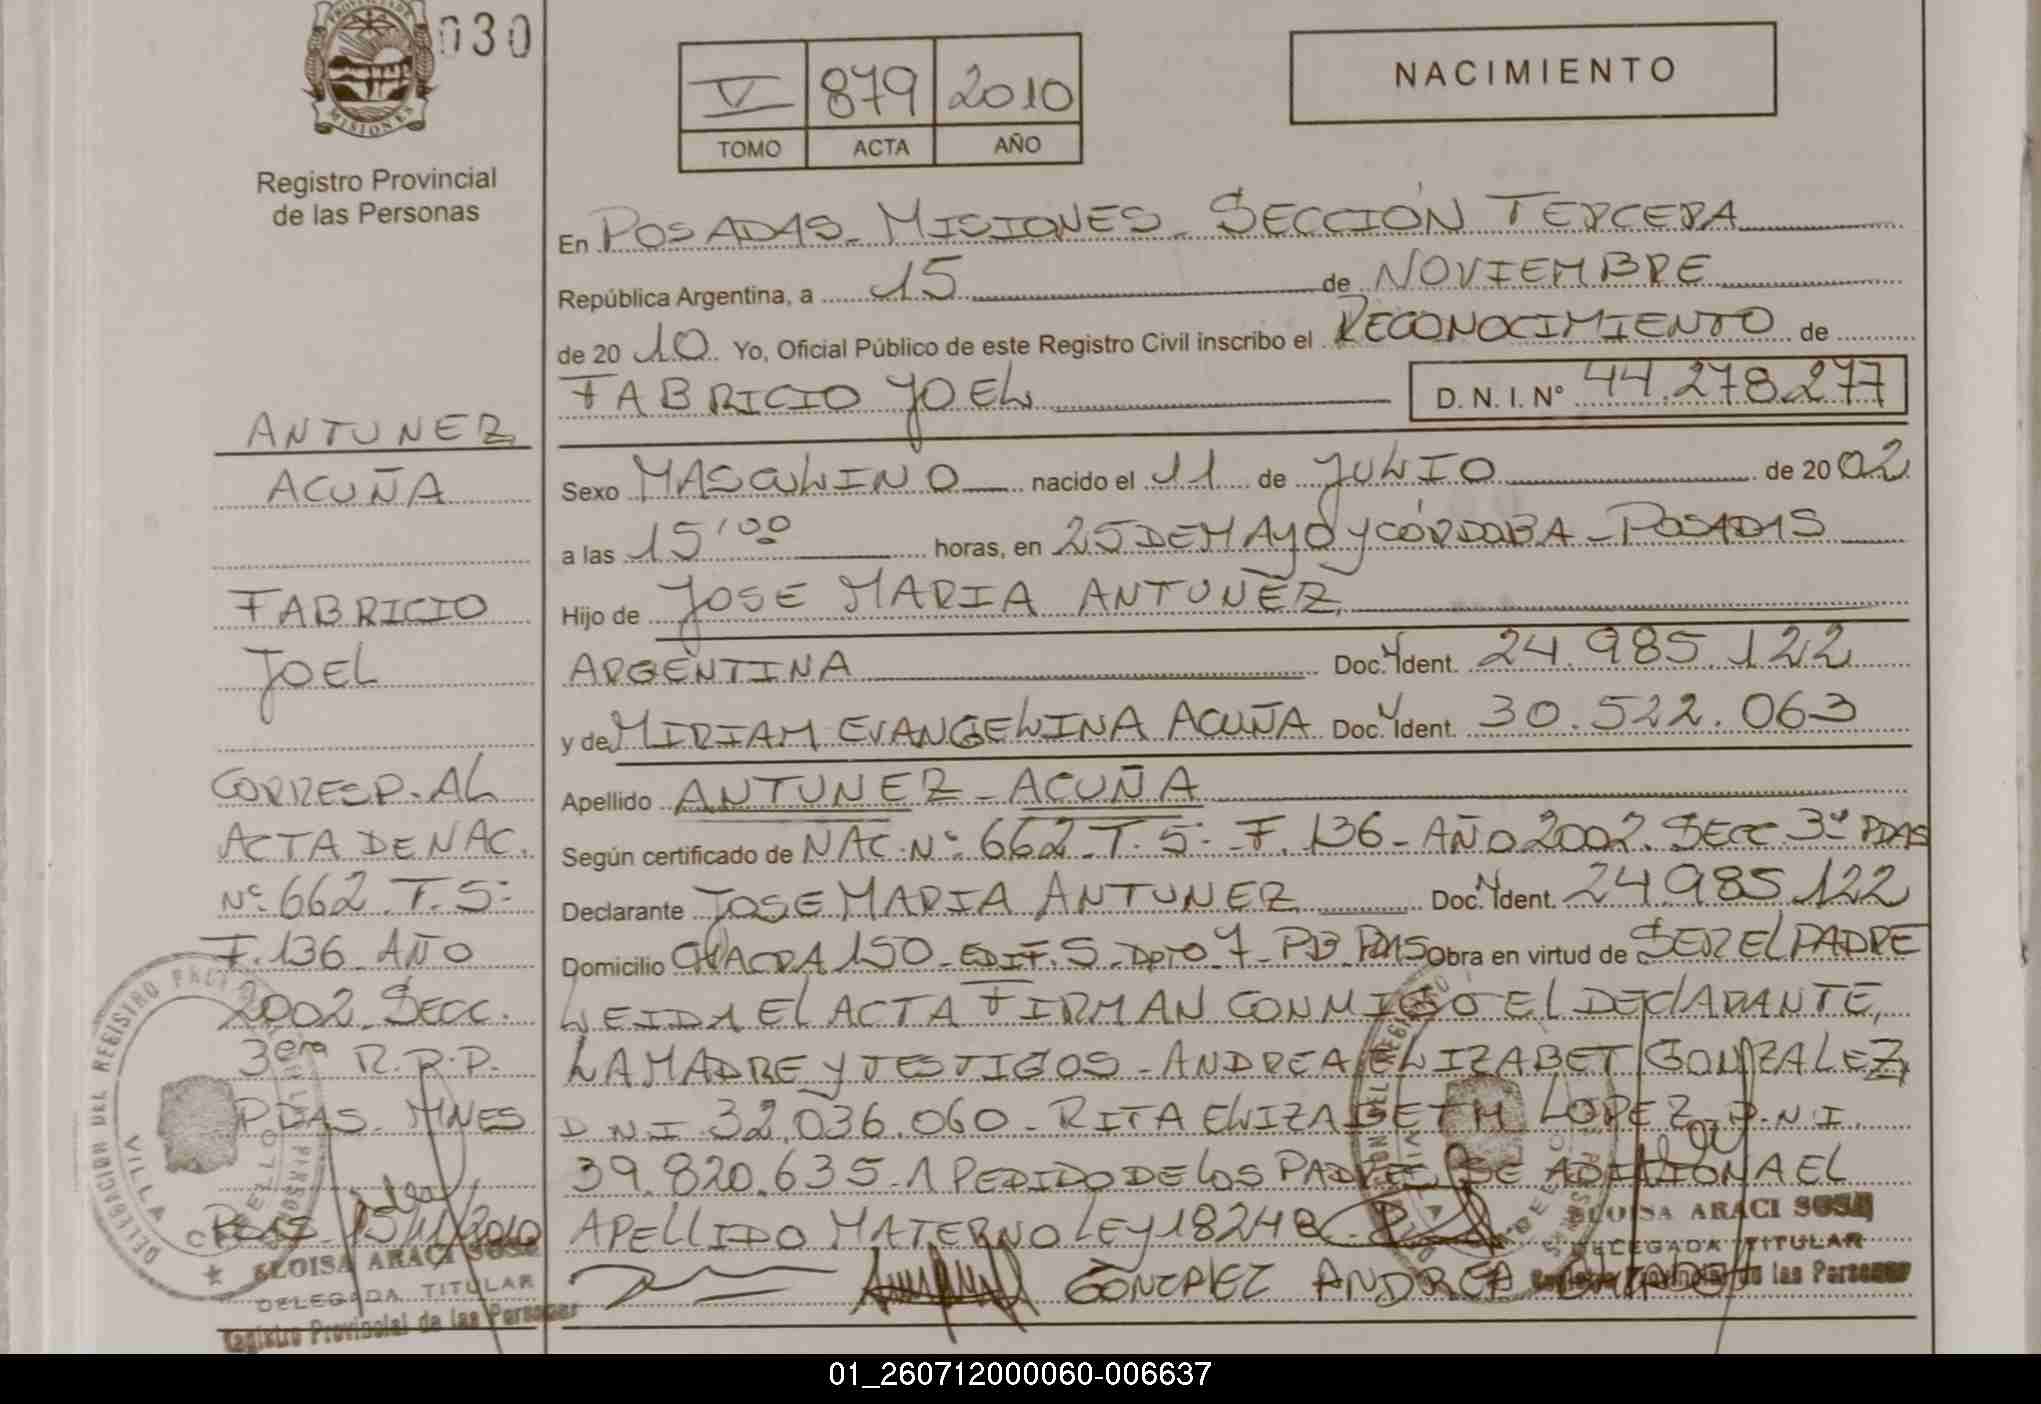 PROVINCIA DE
MISIONES
030
Registro Provincial
de las Personas
V 879 2010
TOMO ACTA AÑO
NACIMIENTO
En POSADAS - MISIONES - SECCIÓN TERCERA
República Argentina, a 15 de NOVIEMBRE
de 20 10 Yo, Oficial Público de este Registro Civil inscribo el RECONOCIMIENTO de
FABRICIO JOEL D. N. I. Nº 44.278.277
Sexo MASCULINO nacido el 11 de JULIO de 20 02
a las 15'00 horas, en 25 DE MAYO y CÓRDOBA - POSADAS
Hijo de JOSE MARIA ANTUNEZ
ARGENTINA Doc. Ident. 24.985.122
y de MIRIAM EVANGELINA ACUÑA Doc. Ident. 30.522.063
Apellido ANTUNEZ - ACUÑA
Según certificado de NAC. Nº 662 T. 5º F. 136 - AÑO 2002. SECC 3ª PDAS
Declarante JOSE MARIA ANTUNEZ Doc. Ident. 24.985.122
Domicilio CHACRA 150 - EDIF. 5 - DPTO 7 - PB PDAS Obra en virtud de SER EL PADRE
LEIDA EL ACTA FIRMAN CONMIGO EL DECLARANTE,
LA MADRE y TESTIGOS - ANDREA ELIZABET GONZALEZ
D.N.I 32.036.060 - RITA ELIZABETH LOPEZ D.N.I.
39.820.635 - A PEDIDO DE LOS PADRES SE ADICIONA EL
APELLIDO MATERNO LEY 18248
GONZALEZ ANDREA
ELOISA ARACI SOSA
DELEGADA TITULAR
Registro Provincial de las Personas
ANTUNEZ
ACUÑA
FABRICIO
JOEL
CORRESP. AL
ACTA DE NAC.
Nº 662 T. 5º
F. 136 AÑO
2002 SECC.
3era R.P.P.
PDAS. MNES
PDAS. 15/11/2010
ELOISA ARACI SOSA
DELEGADA TITULAR
Registro Provincial de las Personas
DELEGACION DEL REGISTRO
VILLA
01_260712000060-006637